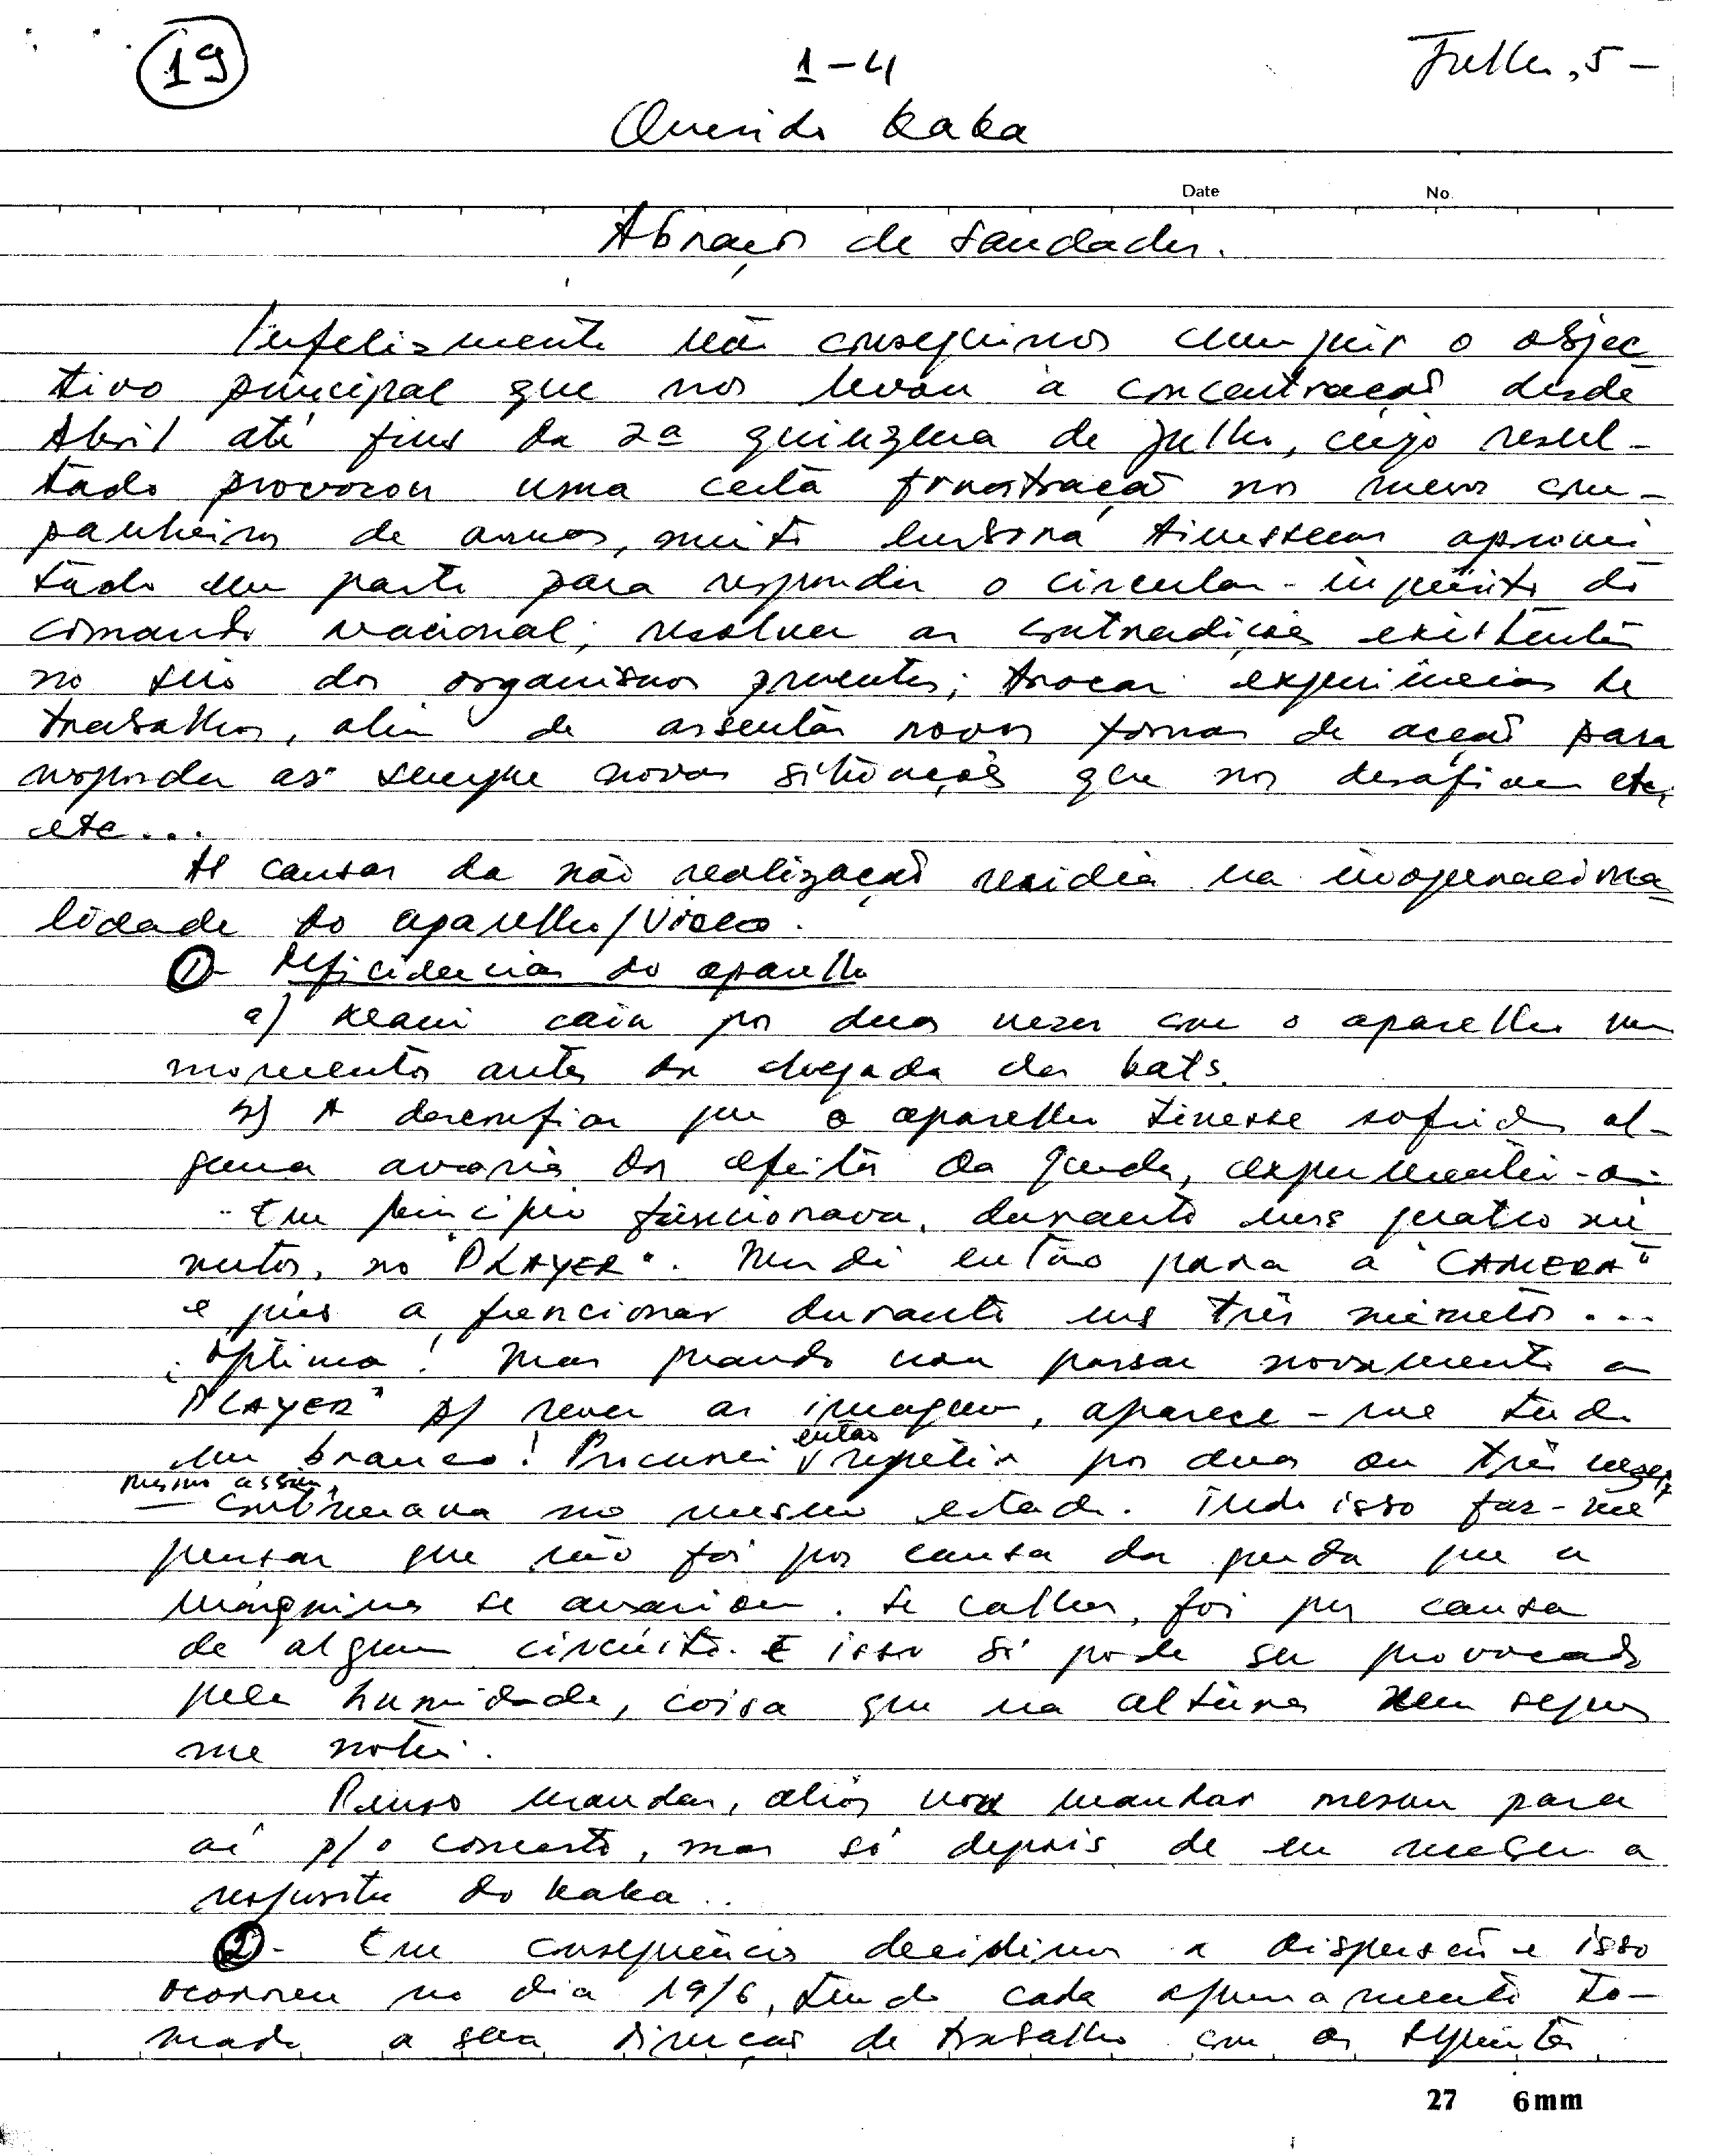 19
1-4
Julho, 5-
Querido kaka
Date No.
Abraços de saudades.
Infelizmente não conseguimos cumprir o objec
tivo principal que nos levou à concentração desde
Abril até fins da 2ª quinzena de julho, cujo resul-
tado provocou uma certa frustração nos meus com-
panheiros de armas, muito embora tivessem aprovei
tado em parte para responder o circular-inquérito do
comando nacional; resolver as contradições existentes
no seio dos organismos presentes; trocar experiências de
trabalhos, além de assentar novas formas de acção para
responder as sempre novas situações que nos desafiam etc,
etc...
As causas da não realização residia na inoperaciona-
lidade do aparelho/Video.
1- Deficidencias do aparelho
a) Keani caiu por duas vezes com o aparelho em
momentos antes da chegada dos kats.
b) A desconfiar que o aparelho tivesse sofrido al-
guma avaria dos efeitos da queda, experimentei-o:
- Em principio funcionava, durante uns quatro mi
nutos, no "PLAYER". Mudei então para a "CAMERA"
e pus a funcionar durante uns três minutos...
óptimo! Mas quando vou passar novamente a
PLAYER" p/ rever as imagens, aparece-me tudo
em branco! Procurei então repetir por duas ou três vezes,
mesmo assim,
- continuava no mesmo estado. Tudo isso faz-me
pensar que não foi por causa da queda que a
máquina se avariou. Se calhar, foi por causa
de algum circúito. E isso só pode ser provocado
pela humidade, coisa que na altura nem sequer
me notei.
Penso mandar, aliás vou mandar mesmo para
aí p/o concerto, mas só depois de eu receber a
resposta do kaka..
2- Em consequência decidimos a dispersão e isso
ocorreu no dia 19/6, tendo cada agrupamento to-
mado a sua direcção de trabalho com os seguintes
27 6mm